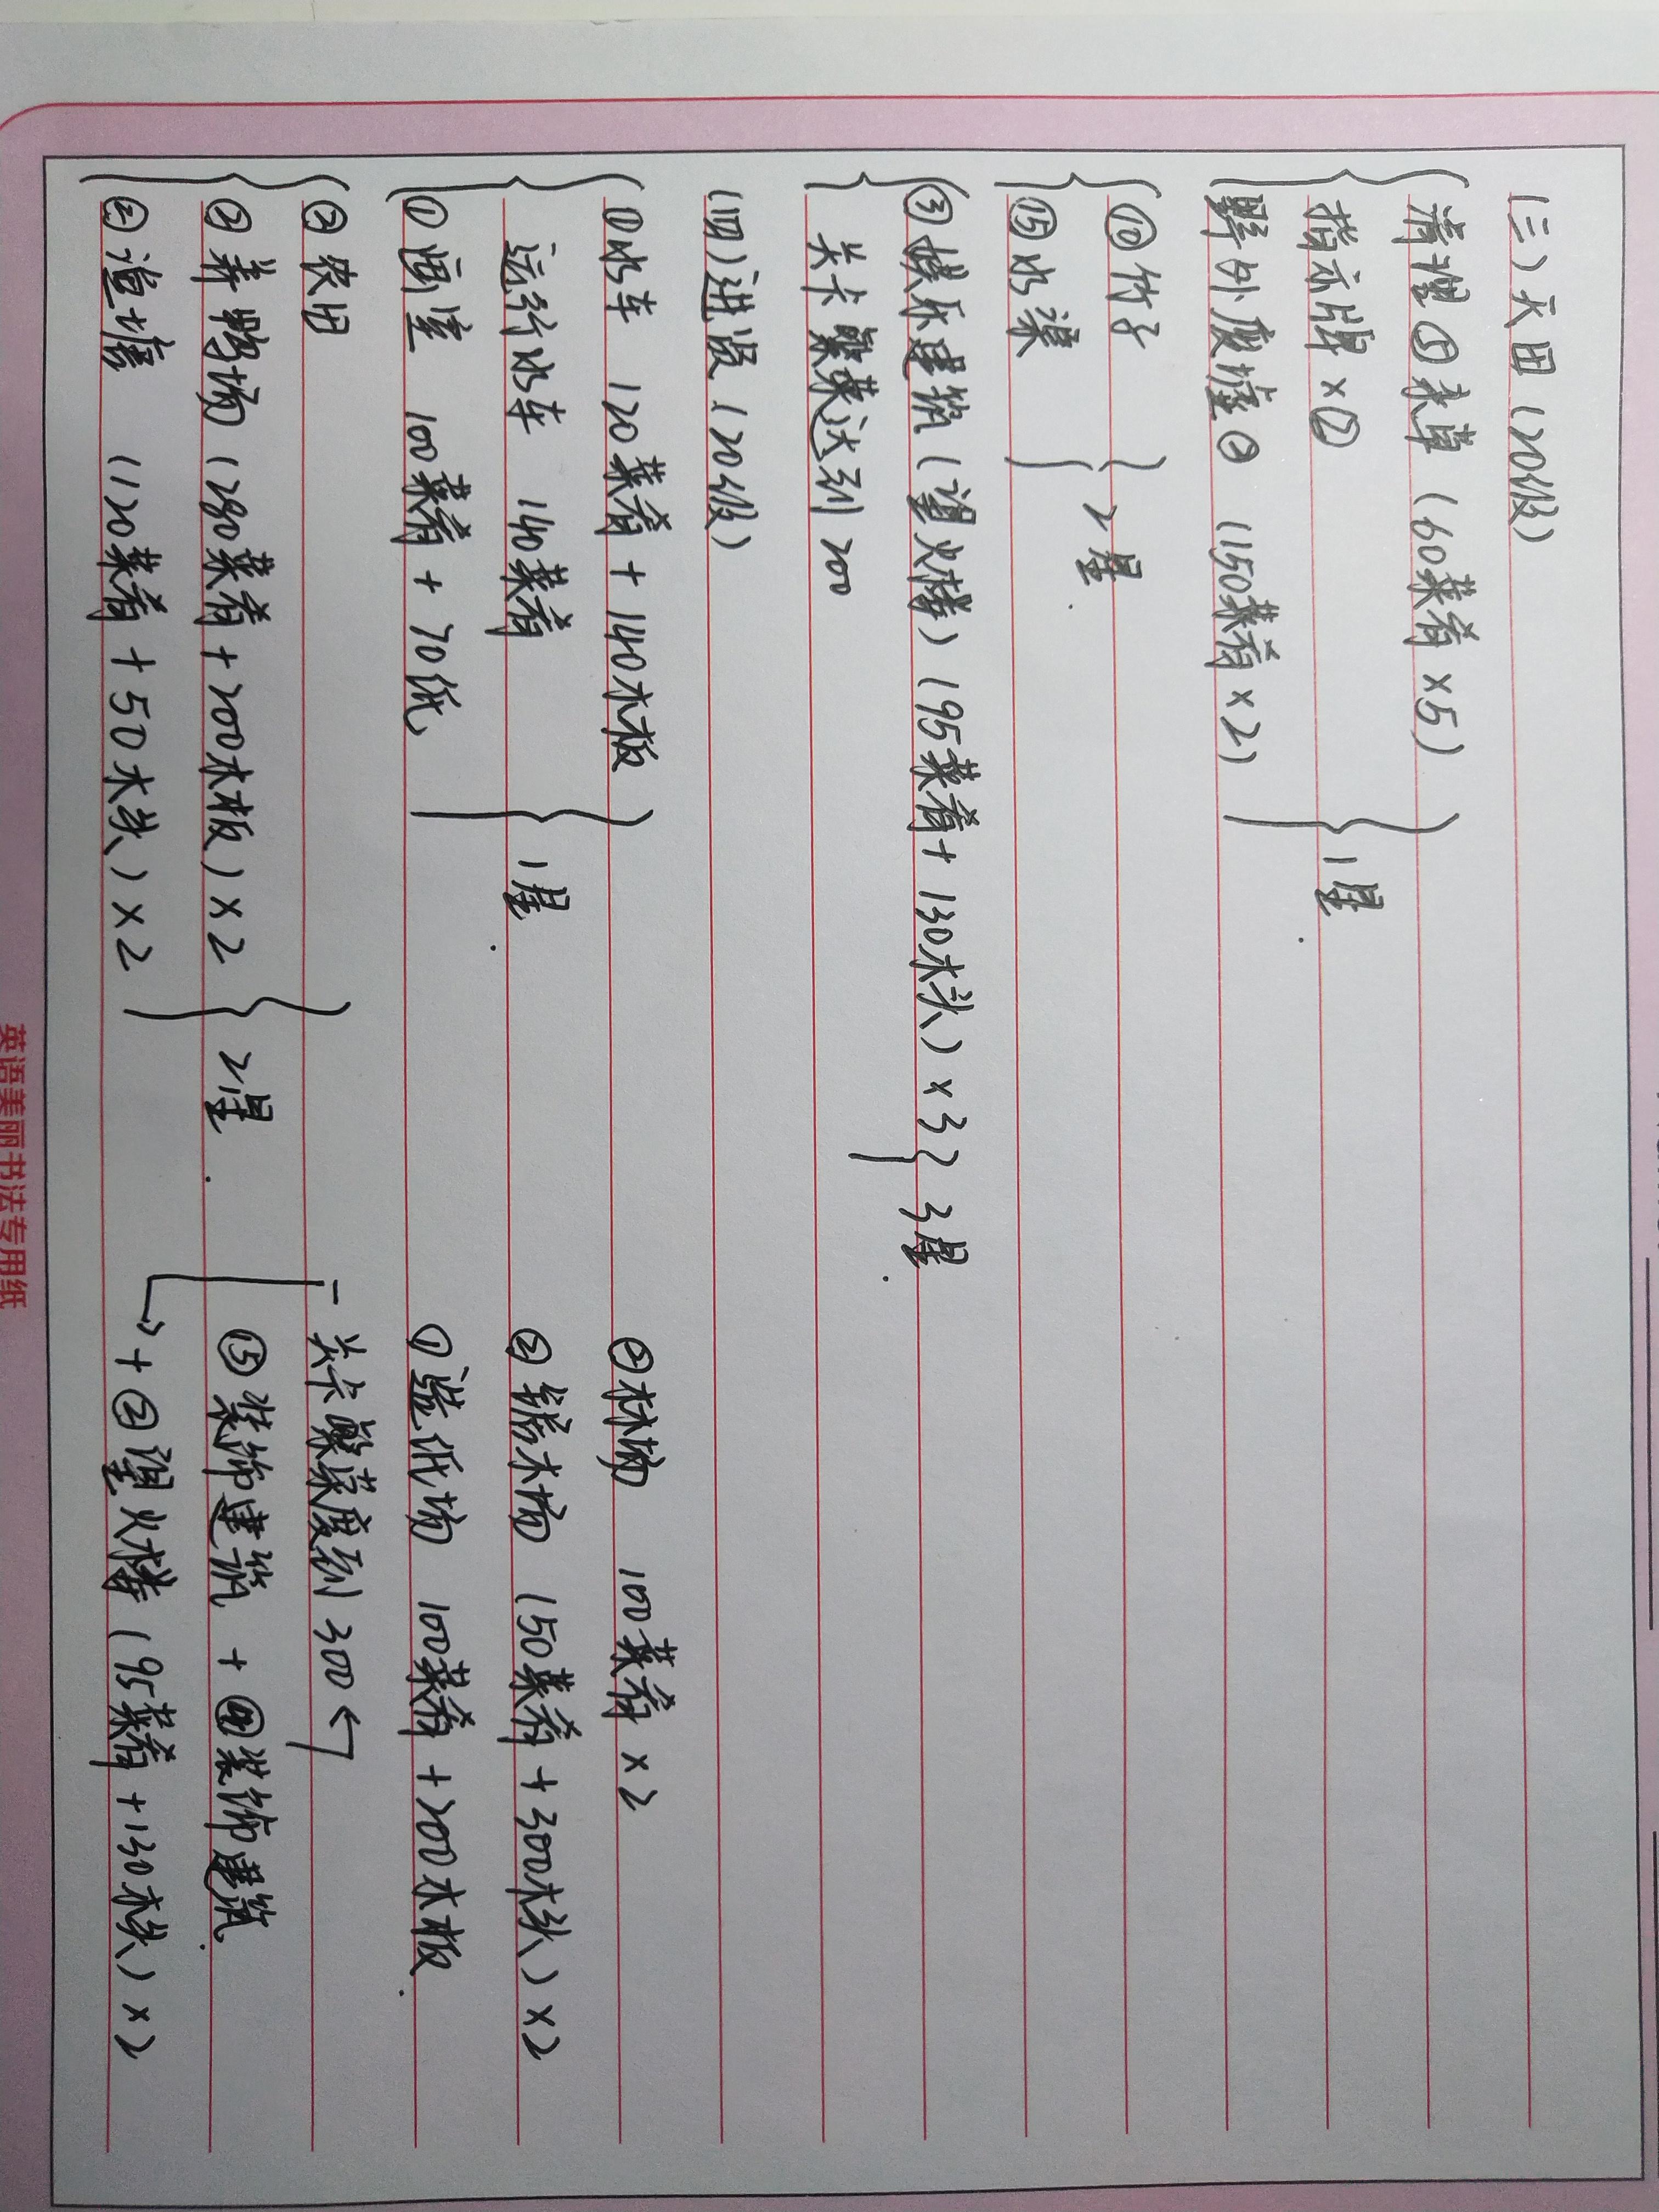 (三) 大田 (20级)
清理⑤杂草 (60菜肴×5)
指示牌×②
野外废墟② (150菜肴×2)
1星.
⑩竹子
⑮水渠
2星.
③娱乐建筑 (望火楼) (95菜肴+130木头)×3
关卡繁荣达到200
3星.
(四) 进贤 (20级)
①水车 120菜肴+140木板
运行水车 140菜肴
①画室 100菜肴+70纸
1星.
②农田
②养鸭场 (280菜肴+200木板)×2
②鱼塘 (120菜肴+50木头)×2
2星.
②林场 100菜肴×2
②锯木场 (150菜肴+300木头)×2
①造纸场 100菜肴+200木板.
关卡繁荣度到300
⑮装饰建筑+④装饰建筑.
+②望火楼 (95菜肴+130木头)×2
英语美丽书法专用纸